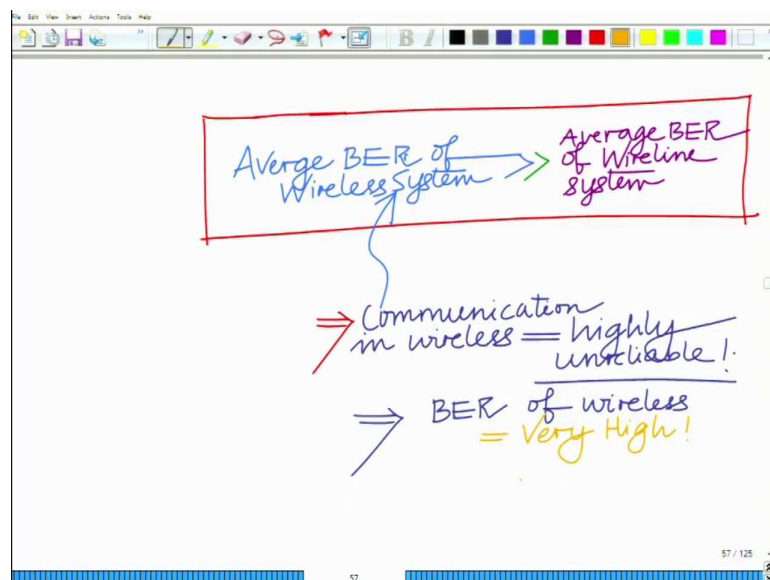 File Edit View Insert Actions Tools Help
B I
Averge BER of
Wireless System
>>
Average BER
of Wireline
system
⇒ Communication
in wireless = highly
unreliable!
⇒ BER of wireless
= Very High!
57 / 125
57